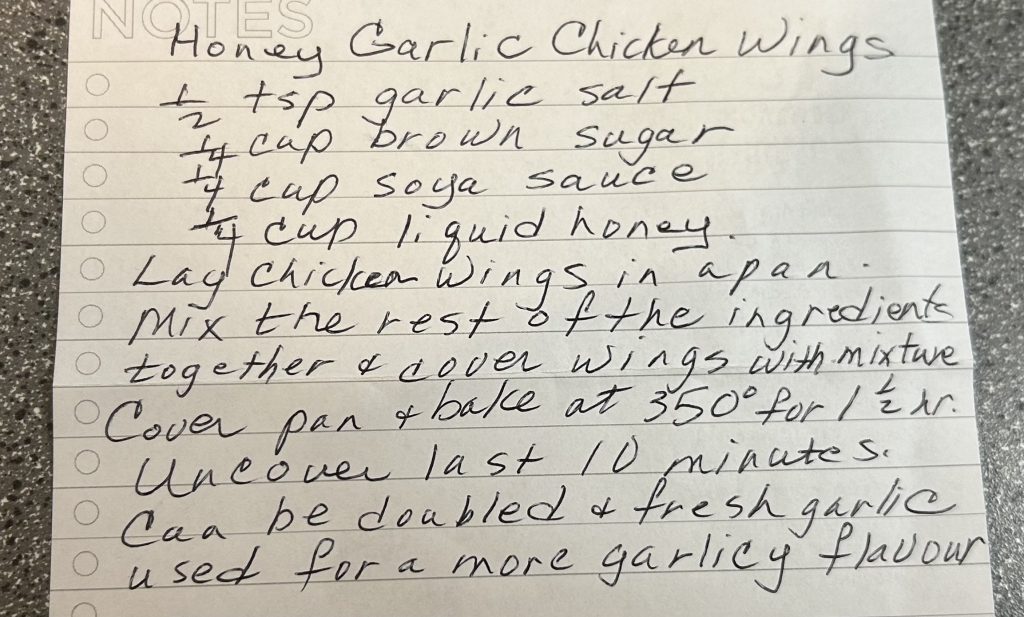 NOTES
Honey Garlic Chicken Wings
1/2 tsp garlic salt
1/4 cup brown sugar
1/4 cup soya sauce
1/4 cup liquid honey.
Lay chicken wings in a pan.
Mix the rest of the ingredients
together & cover wings with mixture
Cover pan & bake at 350° for 1 1/2 hr.
Uncover last 10 minutes.
Can be doubled & fresh garlic
used for a more garlicy flavour